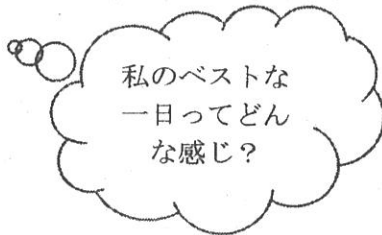 私のベストな
一日ってどん
な感じ？